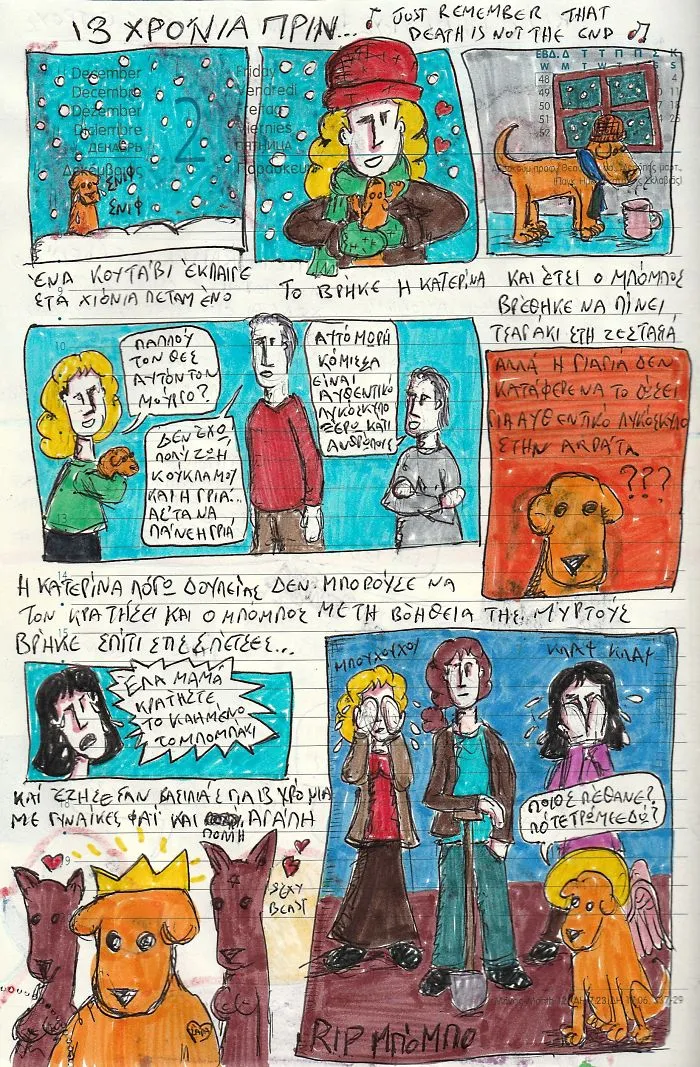 13 ΧΡΟΝΙΑ ΠΡΙΝ...
♪ JUST REMEMBER THAT
DEATH IS NOT THE END ♫
December
Decembre
Dezember
Diciembre
ДЕКАБРЬ
Δεκέμβριος
2
Friday
Vendredi
Freitag
Viernes
ПЯТНИЦА
Παρασκευή
ΕΒΔ. Δ Τ Τ Π Π Σ Κ
W M T W T F S S
48 4
49 11
50 18
51 25
52
ΣΝΙΦ
ΣΝΙΦ
ΕΝΑ ΚΟΥΤΑΒΙ ΕΚΛΑΙΓΕ
ΣΤΑ ΧΙΟΝΙΑ ΠΕΤΑΜΕΝΟ
ΤΟ ΒΡΗΚΕ Η ΚΑΤΕΡΙΝΑ
ΚΑΙ ΕΤΣΙ Ο ΜΠΟΜΠΟΣ
ΒΡΕΘΗΚΕ ΝΑ ΠΙΝΕΙ
ΤΣΑΓΑΚΙ ΣΤΗ ΖΕΣΤΑΣΙΑ
10
ΠΑΠΠΟΥ
ΤΟΝ ΘΕΣ
ΑΥΤΟΝ ΤΟΝ
ΜΟΥΡΓΟ?
ΔΕΝ ΕΧΩ
ΠΟΛΥ ΖΩΗ
ΚΟΥΚΛΑ ΜΟΥ
ΚΑΙ Η ΓΡΙΑ...
ΑΣ ΤΑ ΝΑ
ΠΑΝΕ Η ΓΡΙΑ
ΑΥΤΟ ΜΩΡΗ
ΚΟΜΙΣΣΑ
ΕΙΝΑΙ
ΑΥΘΕΝΤΙΚΟ
ΛΥΚΟΣΚΥΛΟ
ΞΕΡΩ ΚΑΤΙ
ΑΝΘΡΩΠΟΥΣ
13
ΑΛΛΑ Η ΓΙΑΓΙΑ ΔΕΝ
ΚΑΤΑΦΕΡΕ ΝΑ ΤΟ ΔΩΣΕΙ
ΓΙΑ ΑΥΘΕΝΤΙΚΟ ΛΥΚΟΣΚΥΛΟ
ΣΤΗΝ
???
14
Η ΚΑΤΕΡΙΝΑ ΛΟΓΩ ΔΟΥΛΕΙΑΣ ΔΕΝ ΜΠΟΡΟΥΣΕ ΝΑ
ΤΟΝ ΚΡΑΤΗΣΕΙ ΚΑΙ Ο ΜΠΟΜΠΟΣ ΜΕ ΤΗ ΒΟΗΘΕΙΑ ΤΗΣ ΜΥΡΤΟΥΣ
15
ΒΡΗΚΕ ΣΠΙΤΙ ΣΤΙΣ ΣΠΕΤΣΕΣ...
ΕΛΑ ΜΑΜΑ
ΚΡΑΤΗΣΤΕ
ΤΟ ΚΑΗΜΕΝΟ
ΤΟ ΜΠΟΜΠΑΚΙ
ΚΑΙ ΕΖΗΣΕ ΣΑΝ ΒΑΣΙΛΙΑΣ ΓΙΑ 13 ΧΡΟΝΙΑ
ΜΕ ΓΥΝΑΙΚΕΣ ΦΑΪ ΚΑΙ ΠΟΛΛΗ ΑΓΑΠΗ
19
SEXY
BEAST
ΜΠΟΥΧΟΥΧΟΥ
ΚΛΑΨ ΚΛΑΨ
ΠΟΙΟΣ ΠΕΘΑΝΕ?
ΠΟΤΕ ΤΡΩΜΕ ΕΔΩ?
RIP ΜΠΟΜΠΟ